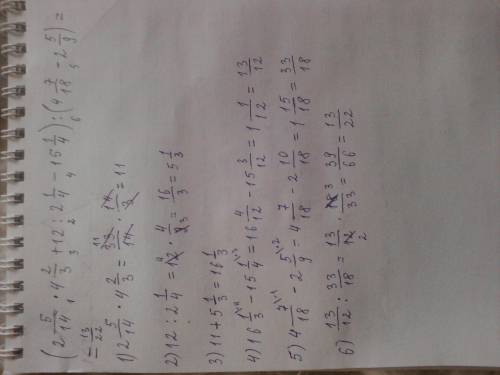 (2 5/14 · 4 2/3 + 12 : 2 1/4 − 15 1/4) : (4 7/18 − 2 5/9) =
= 13/22
1) 2 5/14 · 4 2/3 = 33/14 · 14/3 = 11
2) 12 : 2 1/4 = 12 · 4/9 = 16/3 = 5 1/3
3) 11 + 5 1/3 = 16 1/3
4) 16 1/3 − 15 1/4 = 16 4/12 − 15 3/12 = 1 1/12 = 13/12
5) 4 7/18 − 2 5/9 = 4 7/18 − 2 10/18 = 1 15/18 = 33/18
6) 13/12 : 33/18 = 13/12 · 18/33 = 39/66 = 13/22